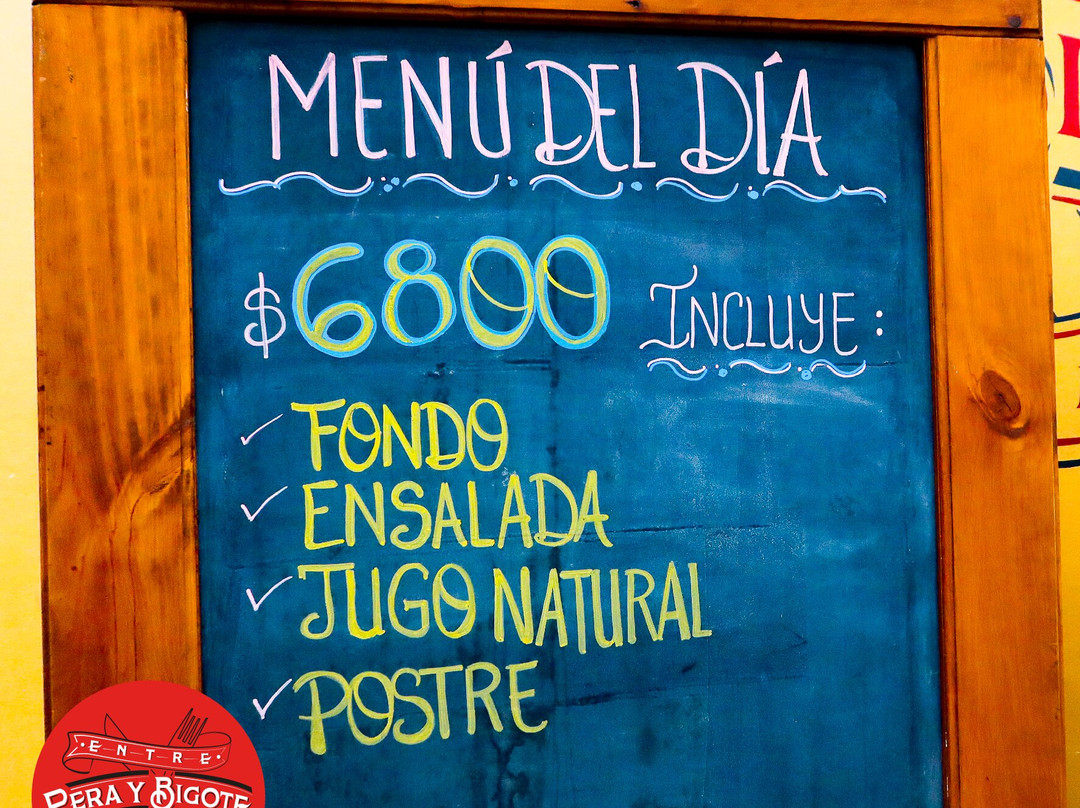 MENÚ DEL DÍA
$6800 INCLUYE:
✓ FONDO
✓ ENSALADA
✓ JUGO NATURAL
✓ POSTRE
·ENTRE·
PERA Y BIGOTE